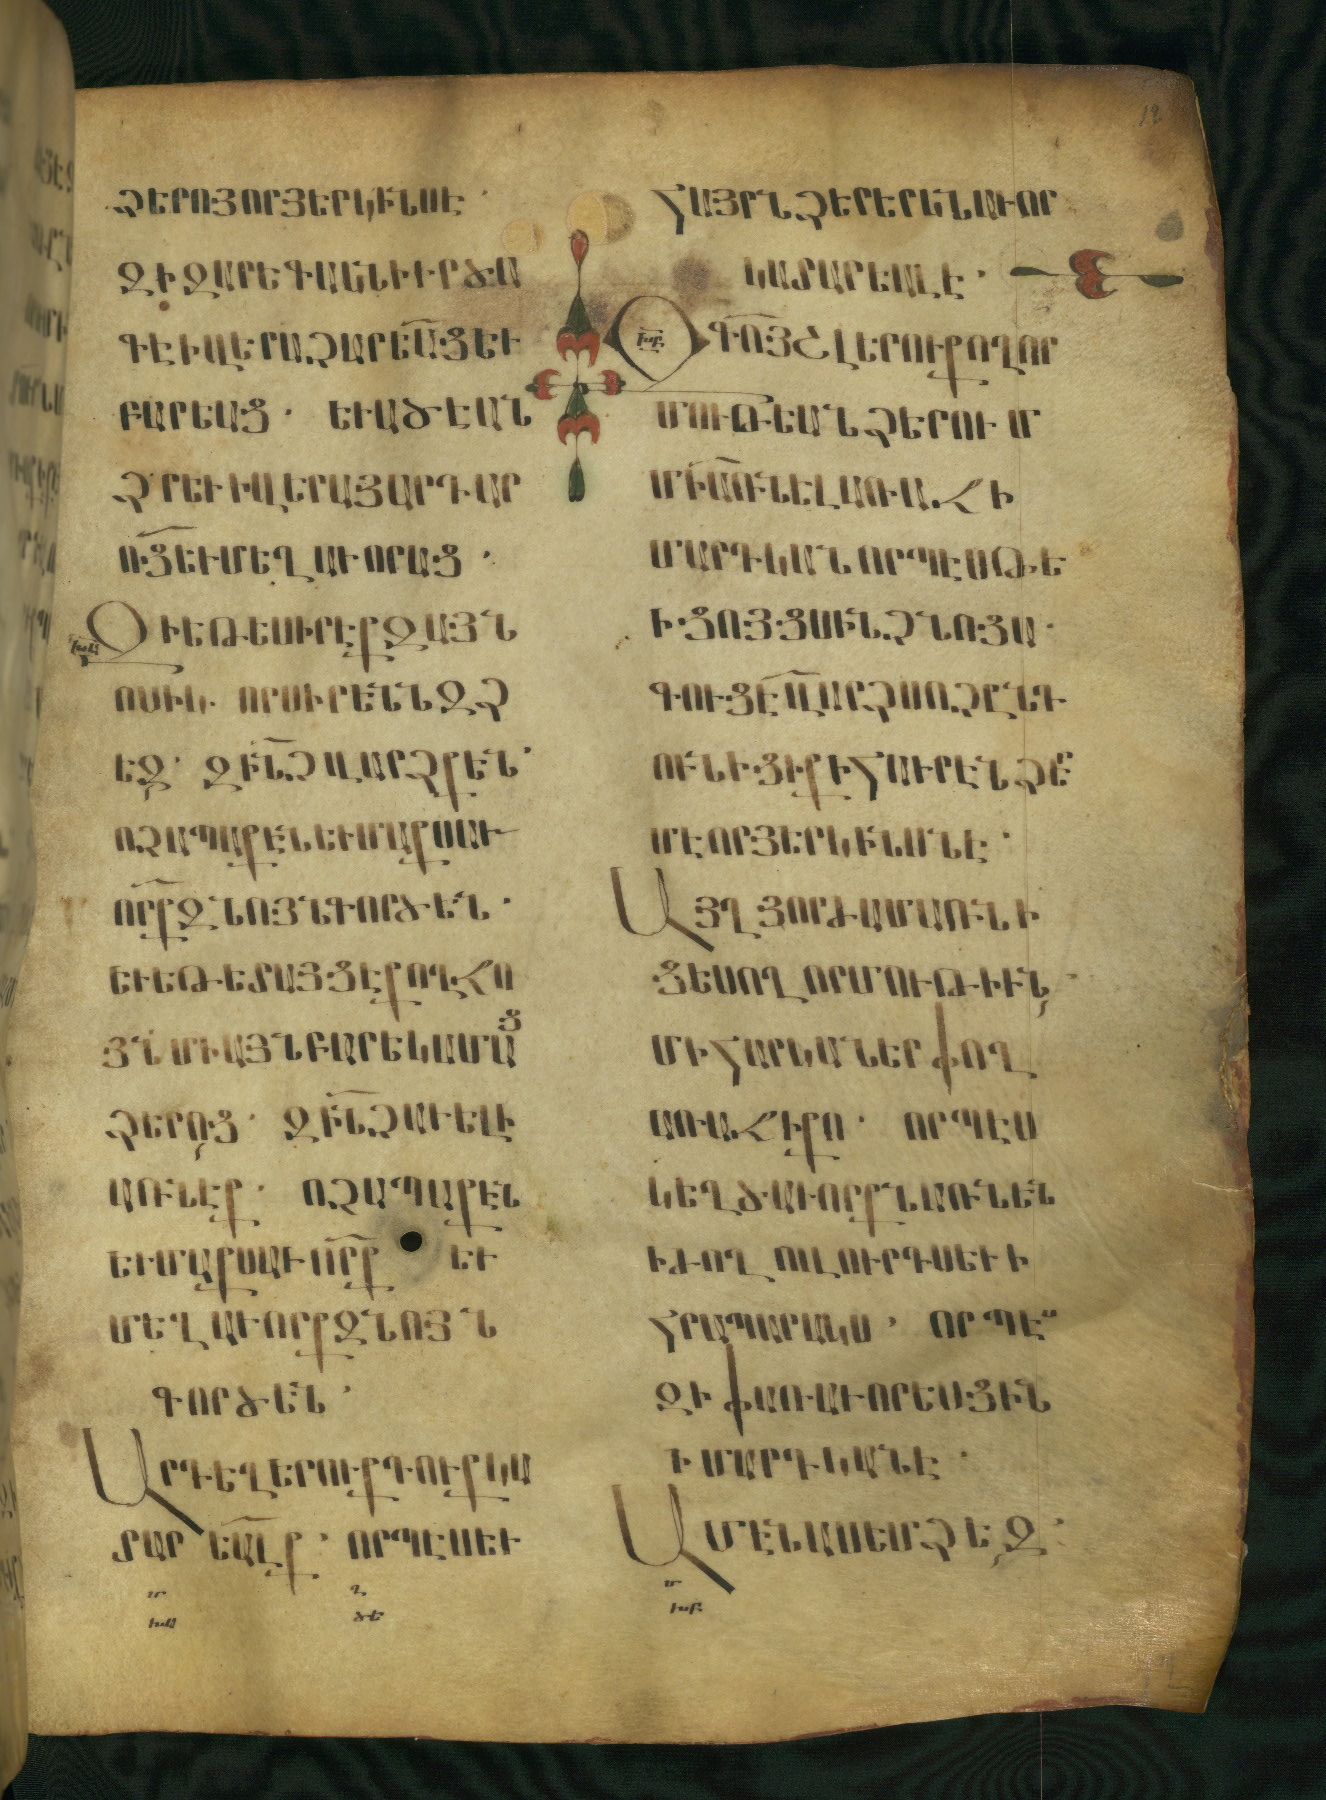 ՁԵՐՈՅ ՈՐ ՅԵՐԿԻՆՍ Է.
ԶԻ ԶԱՐԵԳԱԿՆ ԻՒՐ ԾԱ
ԳԷ Ի ՎԵՐԱ ՉԱՐԵԱՑ ԵՒ
ԲԱՐԵԱՑ. ԵՒ ԱԾԷ ԱՆ
ՁՐԵՒ Ի ՎԵՐԱՅ ԱՐԴԱՐ
ՈՑ ԵՒ ՄԵՂԱՒՈՐԱՑ.
ԶԻ ԵԹԵ ՍԻՐԷՔ ԶԱՅՆ
ՈՍԻԿ ՈՐ ՍԻՐԵՆՆ ԶՁ
ԵԶ. ԶԻՆՉ ՎԱՐՁՔ ԵՆ.
ՈՉ ԱՊԱՔԷՆ ԵՒ ՄԱՔՍԱՒ
ՈՐՔ ԶՆՈՅՆ ԳՈՐԾԵՆ.
ԵՒ ԵԹԵ ՏԱՅՑԷՔ ՈՂՋՈ
ՅՆ ՄԻԱՅՆ ԲԱՐԵԿԱՄԱՑ
ՁԵՐՈՑ. ԶԻՆՉ ԱՒԵԼԻ
ԱՌՆԷՔ. ՈՉ ԱՊԱՔԷՆ
ԵՒ ՄԱՔՍԱՒՈՐՔ ԵՒ
ՄԵՂԱՒՈՐՔ ԶՆՈՅՆ
ԳՈՐԾԵՆ.
ԱՐԴ ԵՂԵՐՈՒՔ ԴՈՒՔ ԿԱ
ՏԱՐԵԱԼՔ. ՈՐՊԷՍ ԵՒ
մ ղ
խա ծե
ՀԱՅՐՆ ՁԵՐ ԵՐԿՆԱՒՈՐ
ԿԱՏԱՐԵԱԼ Է.
խբ
ԶԳՈՅՇ ԼԵՐՈՒՔ ՈՂՈՐ
ՄՈՒԹԵԱՆ ՁԵՐՈՒՄ
ՄԻ ԱՌՆԵԼ ԱՌԱՋԻ
ՄԱՐԴԿԱՆ ՈՐՊԷՍ ԹԵ
Ի ՑՈՅՑ ԻՆՉ ՆՈՑԱ.
ԳՈՒՑԷ ՎԱՐՁՍ ՈՉ ԸՆԴ
ՈՒՆԻՑԻՔ Ի ՀԱՒՐԷՆ ՁԵՐ
ՄԷ ՈՐ ՅԵՐԿԻՆՍՆ Է.
ԱՅՂ ՅՈՐԺԱՄ ԱՌՆԻ
ՑԵՍ ՈՂՈՐՄՈՒԹԻՒՆ
ՄԻ ՀԱՐԿԱՆԵՐ ՓՈՂ
ԱՌԱՋԻ ՔՈ. ՈՐՊԷՍ
ԿԵՂԾԱՒՈՐՔՆ ԱՌՆԵՆ
Ի ԺՈՂՈՎՈՒՐԴՍ ԵՒ Ի
ՀՐԱՊԱՐԱԿՍ. ՈՐՊԷՍ
ԶԻ ՓԱՌԱՒՈՐԵՍՑԻՆ
Ի ՄԱՐԴԿԱՆԷ.
ԱՄԷՆ ԱՍԵՄ ՁԵԶ.
մ
խբ
12